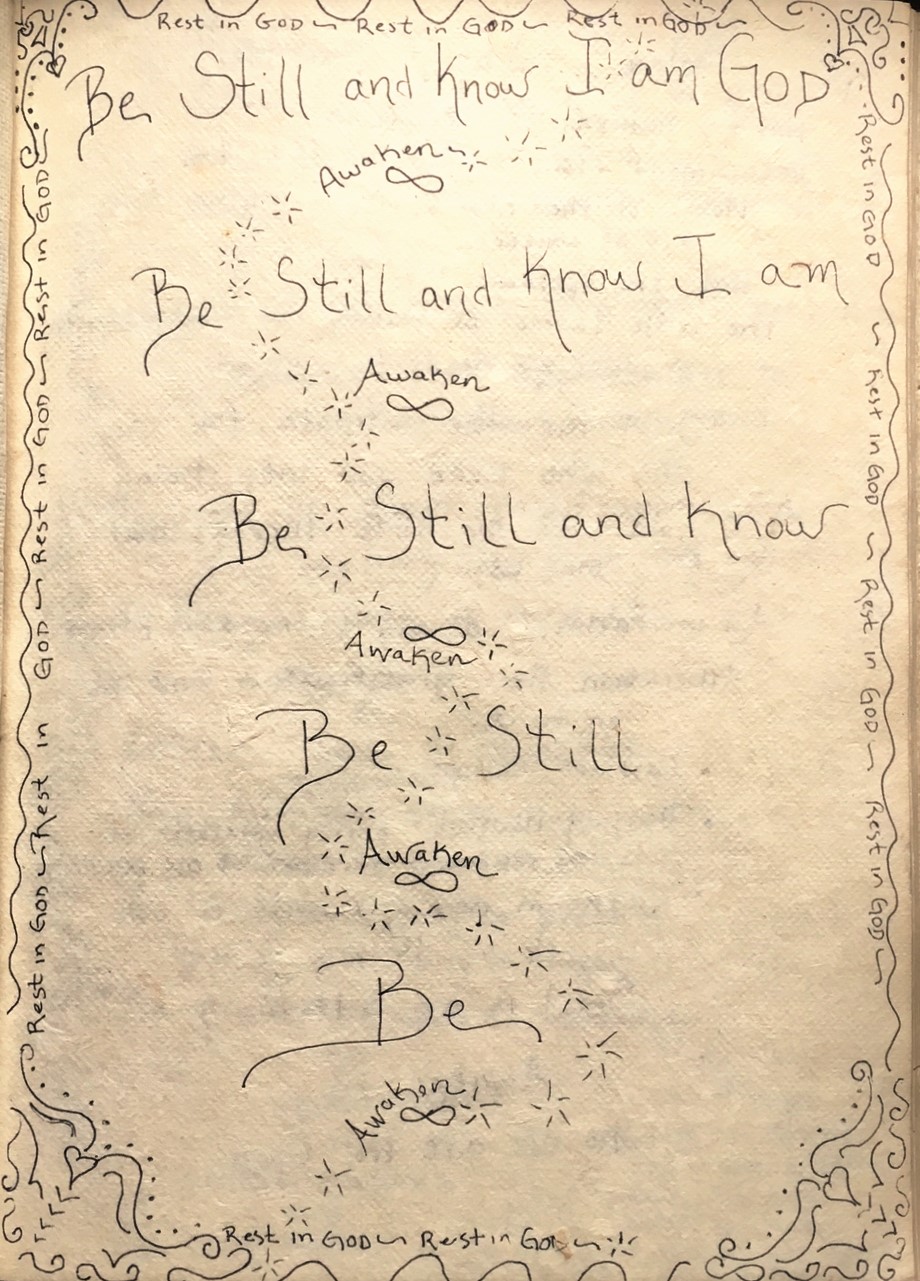 Rest in GOD ~ Rest in GOD ~ Rest in GOD ~
Be Still and Know I am GOD
Awaken
Be Still and Know I am
Awaken
Be Still and Know
Awaken
Be Still
Awaken
Be
Awaken
Rest in GOD ~ Rest in GOD ~
Rest in GOD ~ Rest in GOD ~ Rest in GOD ~ Rest in GOD ~ Rest in GOD
Rest in GOD ~ Rest in GOD ~ Rest in GOD ~ Rest in GOD ~